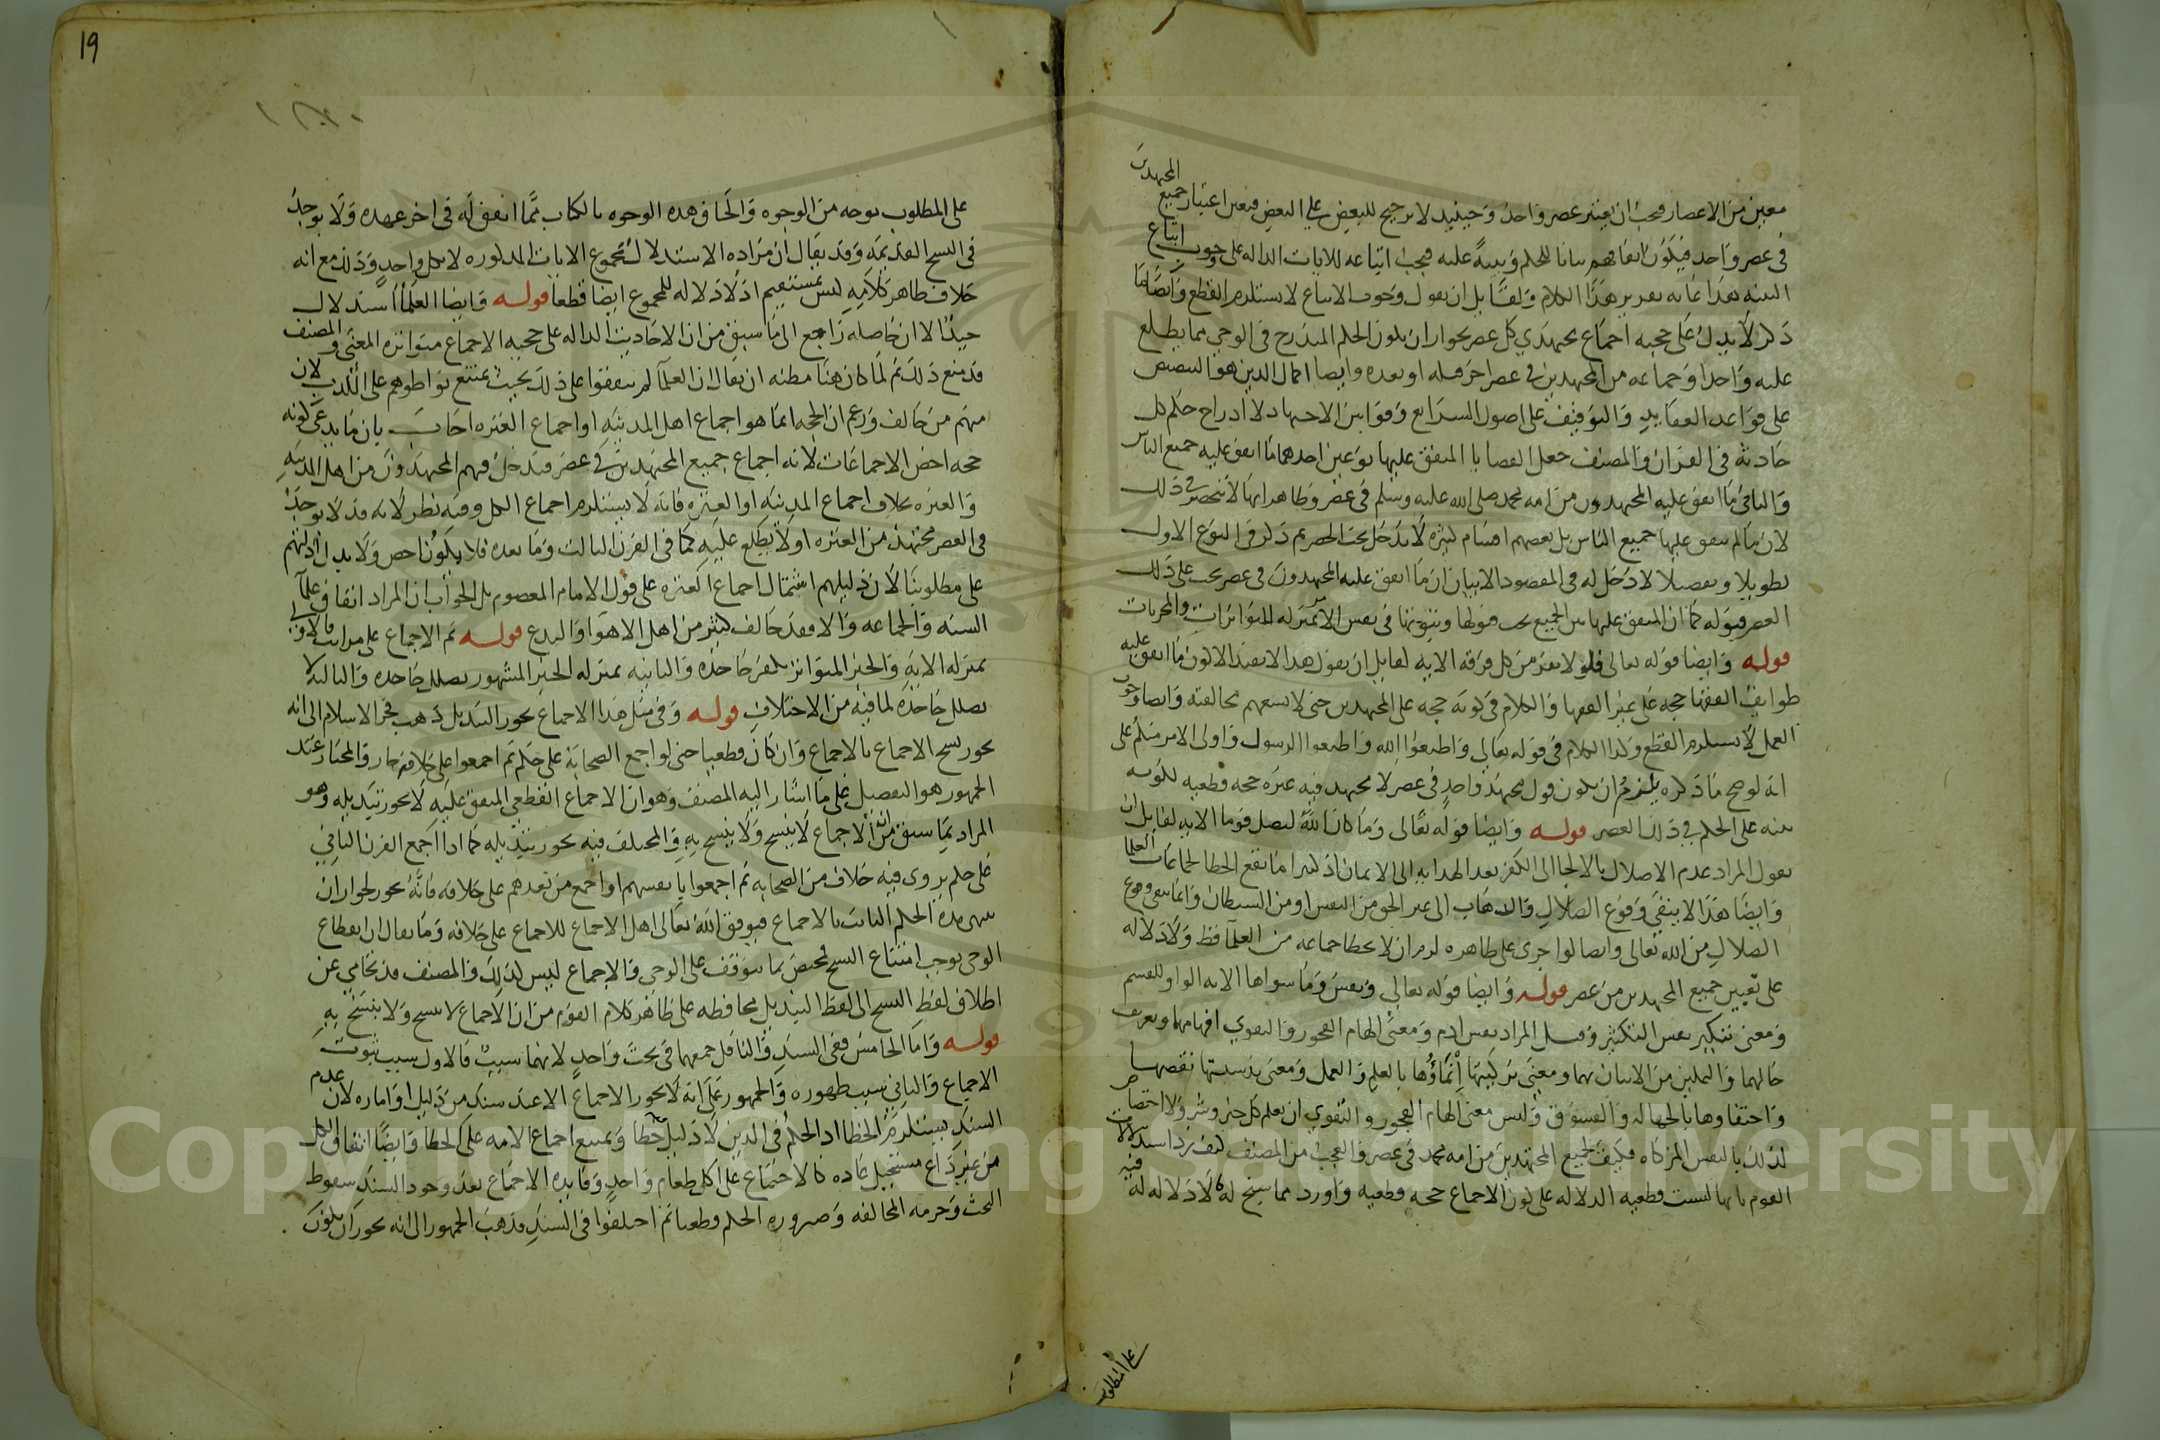 معين من الاعصار فيجب ان يعتبر عصر واحد وحينيد لا ترجيح للبعض على البعض فيعتبر اعتبار جميع المجتهدين
في عصر واحد فيكون اتفاقهم بيانا للحكم وبينة عليه فيجب اتباعه للايات الداله على وجوب اتباع
البينه هذا غايه تقرير هذا الكلام ولقايل ان يقول وجوب الاتباع لا يستلزم القطع وايضا ما
ذكر لا يدل على حجيه اجماع مجتهدي كل عصر لجواز ان يكون الحكم المندرج في الوحي مما يطلع
عليه واحد او جماعه من المجتهدين في عصر اخر قبله او بعده وايضا اكمال الدين هو التنصيص
على قواعد العقايد والتوقيف على اصول الشرايع وقوانين الاجتهاد لا ادراج حكم كل
حادثه في القران والمصنف جعل القضايا المتفق عليها نوعين احدهما ما اتفق عليه جميع الناس
والثاني ما اتفق عليه المجتهدون من امه محمد صلى الله عليه وسلم في عصر وظاهر انها لا تنحصر في ذلك
لان ما لم يتفق عليها جميع الناس بل بعضهم اقسام كثيره لا تدخل تحت الحصر ثم ذكر في النوع الاول
تطويلا وتفصيلا لا دخل له في المقصود الا بيان ان ما اتفق عليه المجتهدون في عصر يجب على ذلك
العصر قبوله كما ان المتفق عليها بين الجميع يجب قبولها وتيقنها في نفس الامر بمنزله المتواترات والمجربات
قوله وايضا قوله تعالى فلولا نفر من كل فرقه الايه لقايل ان يقول هذا لا يفيد الا كون ما اتفق عليه
طوايف الفقها حجه على غير الفقها والكلام في كونه حجه على المجتهدين حتى لا يسعهم مخالفته وايضا وجوب
العمل لا يستلزم القطع وكذا الكلام في قوله تعالى واطيعوا الله واطيعوا الرسول واولى الامر منكم على
انه لو صح ما ذكره يلزم ان يكون قول مجتهد واحد في عصر لا مجتهد فيه غيره حجه قطعيه لكونه
بينه على الحكم في ذلك العصر قوله وايضا قوله تعالى وما كان الله ليضل قوما الايه لقايل ان
يقول المراد عدم الاضلال بالالجا الى الكفر بعد الهدايه الى الايمان اذ كثيرا ما يقع الخطا لجماعات العلما
وايضا هذا لا ينفي وقوع الضلال والذهاب الى غير الحق من النفس او من الشيطان وانما ينفي وقوع
الضلال من الله تعالى وايضا لو اجرى على ظاهره لزم ان لا يخطا جماعه من العلما قط ولا دلاله
على تعيين جميع المجتهدين من عصر قوله وايضا قوله تعالى ونفس وما سواها الايه الواو للقسم
ومعنى تنكير نفس التكثير وقيل المراد نفس ادم ومعنى الهام الفجور والتقوي افهامهما وتعريف
حالهما والتمكين من الاتيان بهما ومعنى تزكيتها انماؤها بالعلم والعمل ومعنى تدسيتها نقصها
واخفاوها بالجهاله والفسوق وليس معنى الهام الفجور والتقوي ان يعلم كل خير وشر ولا اختصاص
لذلك بالنفس المزكاه فكيف لجميع المجتهدين من امه محمد في عصر والعجب من المصنف كيف رد استدلالات
القوم بانها ليست قطعيه الدلاله على كون الاجماع حجه قطعيه واورد مما سنح له ما لا دلاله له فيه
على المطلوب
19
على المطلوب بوجه من الوجوه والحاق هذه الوجوه بالكتاب مما اتفق له في اخر عهده ولا يوجد
في النسخ القديمه وقد يقال ان مراده الاستدلال بمجموع الايات المذكوره لا بكل واحد وذلك مع انه
خلاف ظاهر كلامه ليس بمستقيم اذ لا دلاله للمجموع ايضا قطعا قوله وايضا العلما استدلال
جيد الا ان حاصله راجع الى ما سبق من ان الاحاديث الداله على حجيه الاجماع متواتره المعنى والمصنف
قد منع ذلك ثم لما كان هنا مظنه ان يقال ان العلما لم يتفقوا على ذلك بحيث يمتنع تواطوهم على الكذب لان
منهم من خالف وزعم ان الحجه انما هو اجماع اهل المدينه او اجماع العتره اجاب بان ما ندعي كونه
حجه اخص الاجماعات لانه اجماع جميع المجتهدين في عصر فيدخل فيهم المجتهدون من اهل المدينه
والعتره بخلاف اجماع المدينه او العتره فانه لا يستلزم اجماع الكل وفيه نظر لانه قد لا يوجد
في العصر مجتهد من العتره او لا يطلع عليه كما في القرن الثالث وما بعده فلا يكون اخص ولا يدل ادلتهم
على مطلوبنا لان دليلهم اشتمال اجماع العتره على قول الامام المعصوم بل الجواب ان المراد اتفاق علما
السنه والجماعه والا فقد خالف كثير من اهل الاهوا والبدع قوله ثم الاجماع على مراتب فالاولى
بمنزله الايه والخبر المتواتر يكفر جاحده والثانيه بمنزله الخبر المشهور يضلل جاحده والثالثه لا
يضلل جاحده لما فيه من الاختلاف قوله وفي مثل هذا الاجماع يجوز التبديل ذهب فخر الاسلام الى انه
يجوز نسخ الاجماع بالاجماع وان كان قطعيا حتى لو اجمع الصحابة على حكم ثم اجمعوا على خلافه جاز والمختار عند
الجمهور هو التفصيل على ما اشار اليه المصنف وهو ان الاجماع القطعي المتفق عليه لا يجوز تبديله وهو
المراد بما سبق من ان الاجماع لا ينسخ ولا ينسخ به والمختلف فيه يجوز تبديله كما اذا اجمع القرن الثاني
على حكم يروى فيه خلاف من الصحابه ثم اجمعوا بانفسهم او اجمع من بعدهم على خلافه فانه يجوز لجواز ان
ينتهي مدة الحكم الثابت بالاجماع فيوفق الله تعالى اهل الاجماع للاجماع على خلافه وما يقال ان انقطاع
الوحي يوجب امتناع النسخ فمختص بما يتوقف على الوحي والاجماع ليس كذلك والمصنف قد تحامى عن
اطلاق لفظ النسخ الى لفظ التبديل محافظه على ظاهر كلام القوم من ان الاجماع لا ينسخ ولا ينسخ به
قوله واما الخامس ففي السند والناقل جمعهما في بحث واحد لانهما سبب فالاول سبب ثبوت
الاجماع والثاني سبب ظهوره والجمهور على انه لا يجوز الاجماع الا عند سند من دليل او اماره لان عدم
السند يستلزم الخطا اذ الحكم في الدين لا دليل خطا ويمتنع اجماع الامه على الخطا وايضا اتفاق الكل
من غير داع مستحيل عاده كالاجتماع على اكل طعام واحد وفايده الاجماع بعد وجود السند سقوط
البحث وحرمه المخالفه وضروره الحكم قطعيا ثم اختلفوا في السند فذهب الجمهور الى انه يجوز ان يكون
Copyright © King Saud University